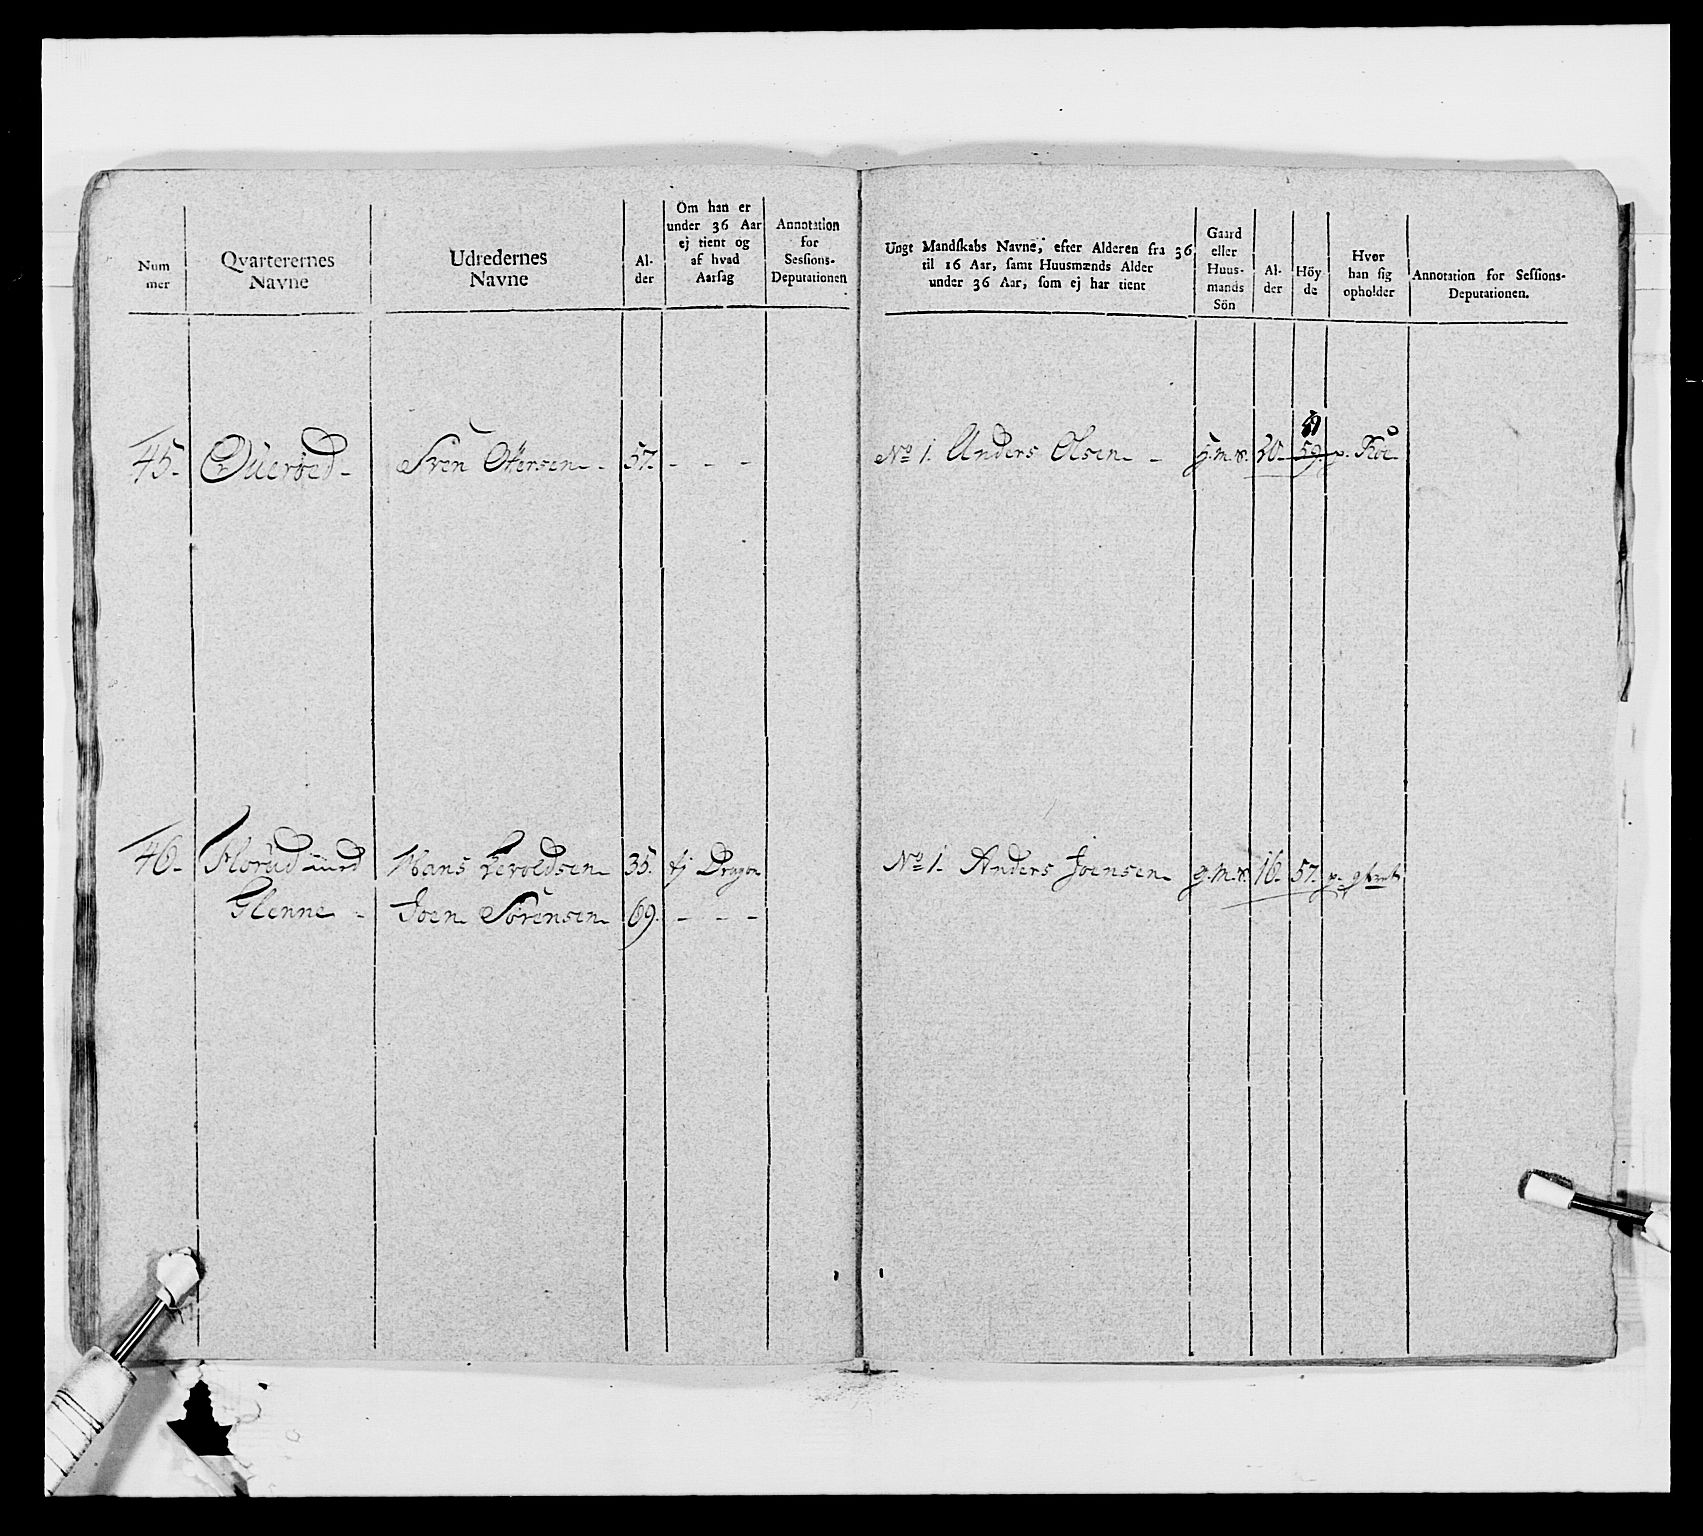 Num
mer
Qvarterernes
Navne
Udredernes
Navne
Al-
der
Om han er
under 36 Aar
ej tient og
af hvad
Aarsag
Annotation
for
Sessions-
Deputationen
Ungt Mandskabs Navne, efter Alderen fra 36
til 16 Aar, samt Huusmænds Alder
under 36 Aar, som ej har tient
Gaard
eller
Huus-
mands
Sön
Al-
der
Höy
de
Hvor
han sig
opholder
Annotation for Sessions-
Deputationen.
45. Sven Ottersen - 57. - - - No 1. Anders Olsen - g.m.s. 20. 59.
46. Florud Hans 35. Dragon No 1. Anders Joensen g.m.s. 16. 57.
Glenne - Joen Sörensen 69. - - -